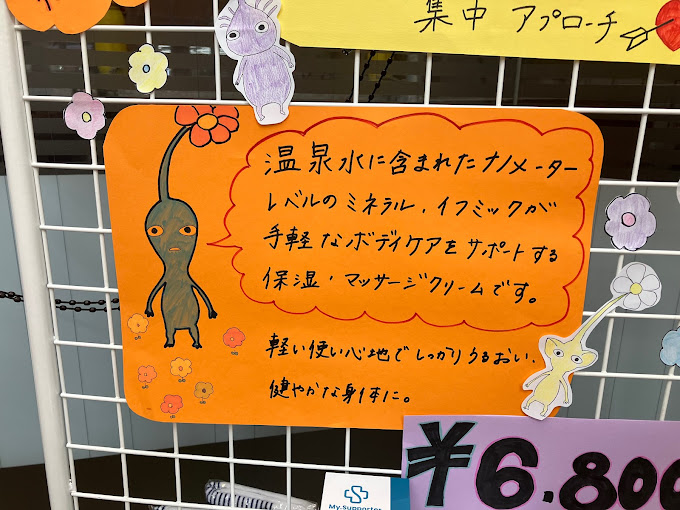 集中 アプローチ
温泉水に含まれたナノメーター
レベルのミネラル、イフミックが
手軽なボディケアをサポートする
保湿・マッサージクリームです。
軽い使い心地でしっかりうるおい、
健やかな身体に。
¥6,800
My Supporter